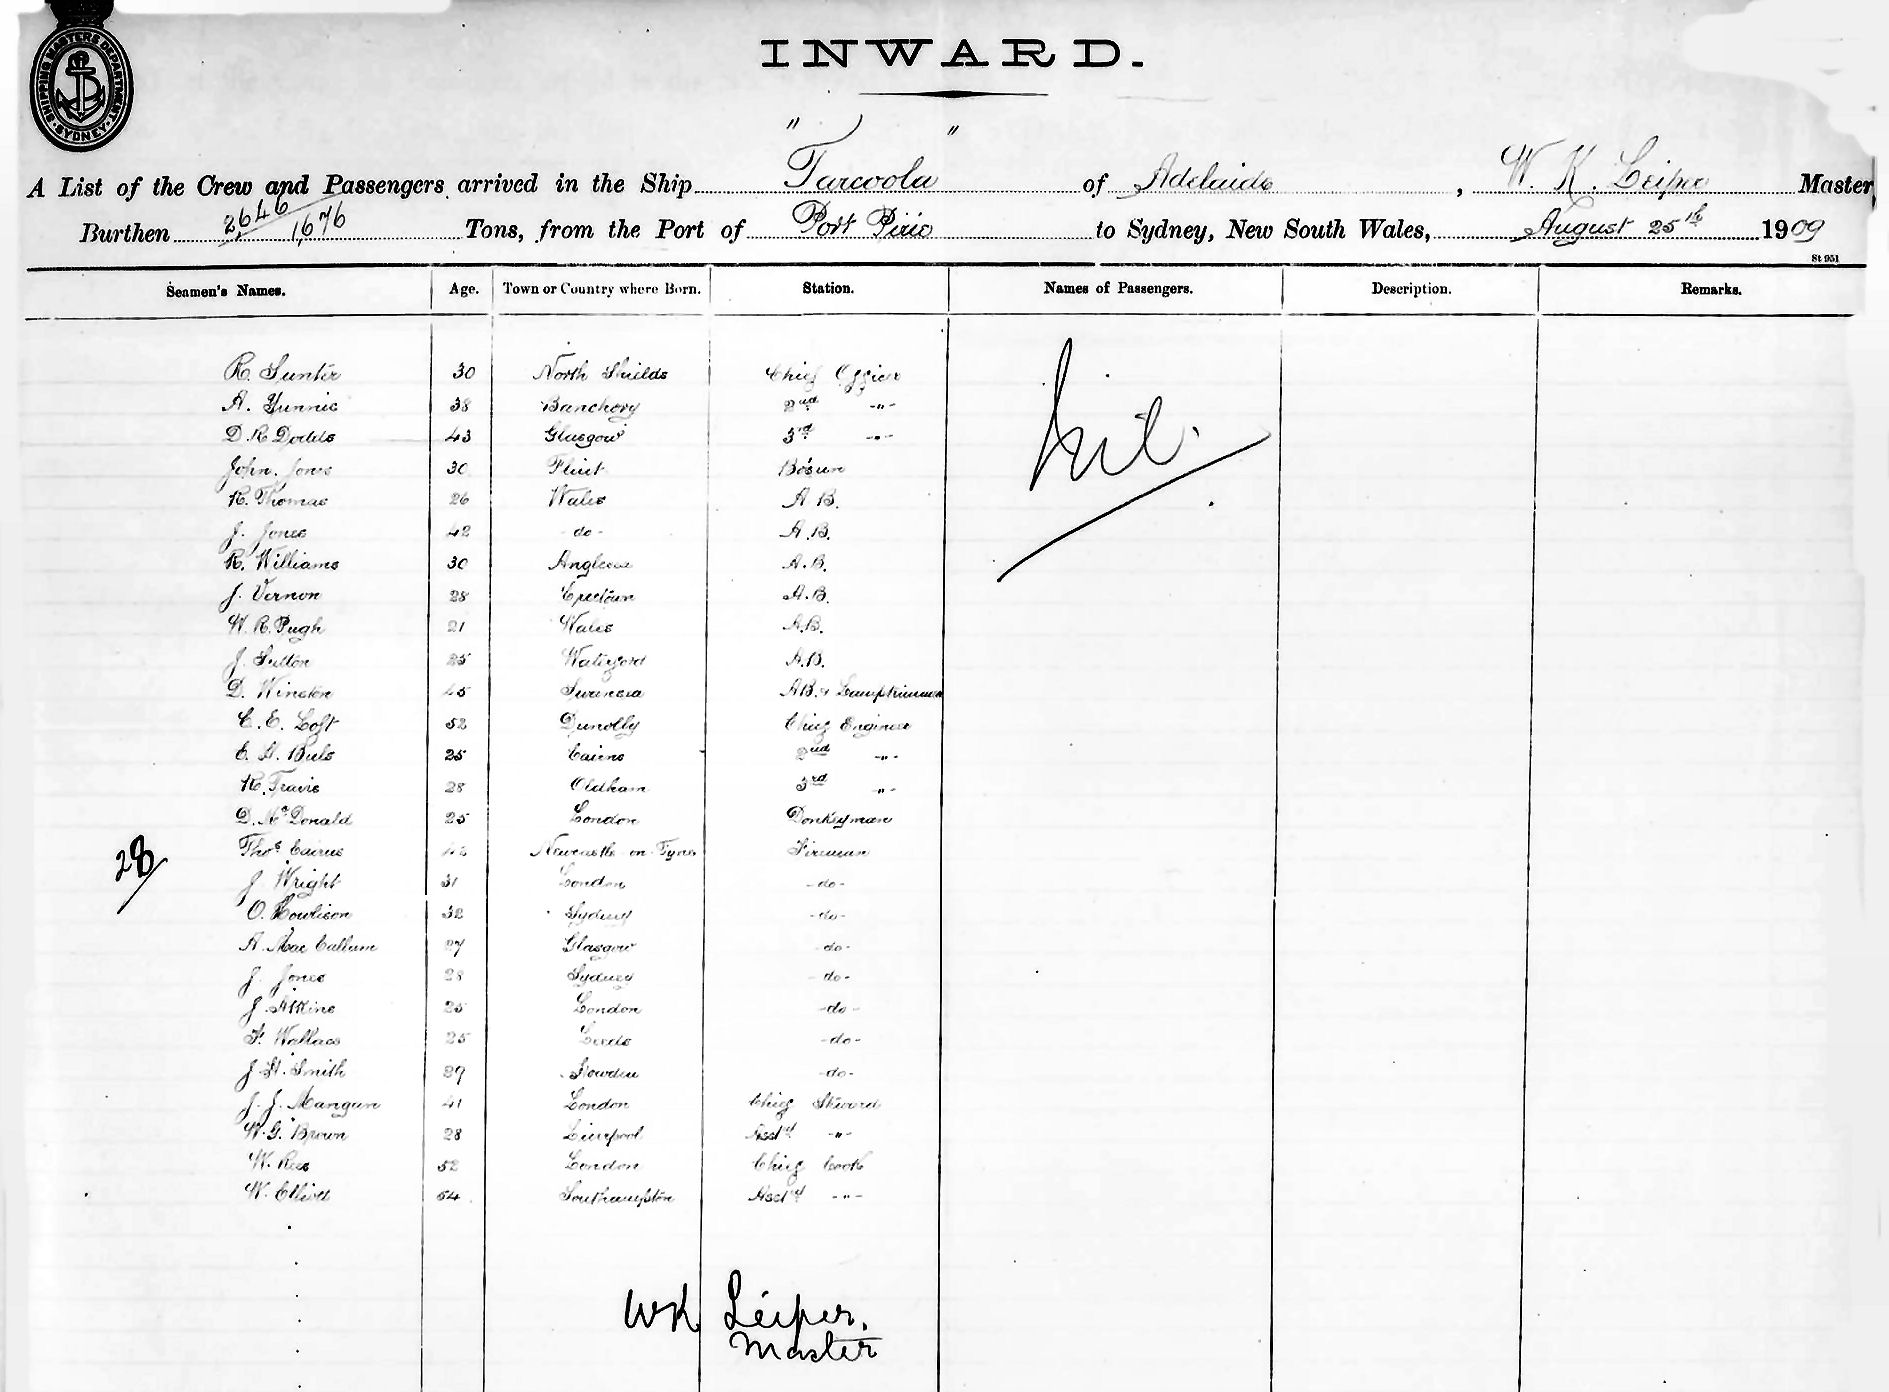 SHIPPING MASTERS DEPARTMENT SYDNEY
INWARD.
A List of the Crew and Passengers arrived in the Ship "Tarcoola" of Adelaide, W. K. Leiper Master
Burthen 2,646 / 1,676 Tons, from the Port of Port Pirie to Sydney, New South Wales, August 25th 1909
St 951
Seamen's Names. Age. Town or Country where Born. Station. Names of Passengers. Description. Remarks.
R. Hunter 30 North Shields Chief Officer nil.
A. 38 Banchory 2nd -"-
D. R. Dodds 43 Glasgow 3rd -"-
John Jones 30 Flint Bosun
R. Thomas 26 Wales A.B.
J. Jones 42 -do- A.B.
R. Williams 30 A.B.
J. Vernon 28 A.B.
W. R. Pugh 21 Wales A.B.
J. Sutton 25 Waterford A.B.
D. Winston 45 Swansea AB. & Lamptrimmer
C. E. Loft 52 Dunolly Chief Engineer
E. H. 25 Cairns 2nd -"-
R. Travis 28 Oldham 3rd -"-
D. McDonald 25 London Donkeyman
Thos Cairns 42 Newcastle-on-Tyne Fireman
28
J. Wright 31 London -do-
O. 32 Sydney -do-
A. MacCallum 27 Glasgow -do-
J. Jones 28 Sydney -do-
J. Atkins 25 London -do-
F. Wallace 25 Leeds -do-
J. H. Smith 29 -do-
J. J. Mangan 41 London Chief Steward
W. G. Brown 28 Liverpool Asstd -"-
W. Rees 52 London Chief Cook
W. Elliott 54 Southampton Asstd -"-
WK Leiper.
Master